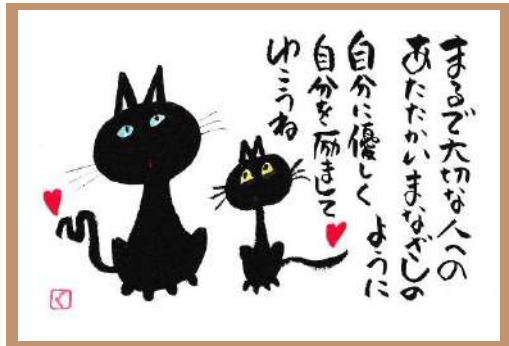 まるで大切な人への
あたたかいまなざしの
ように
自分に優しく
自分を励まして
ゆこうね